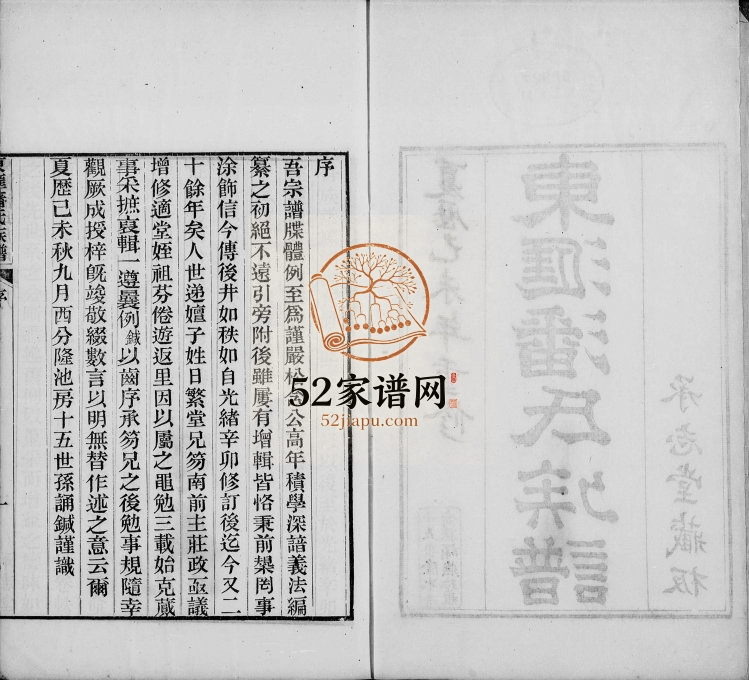 東匯潘氏族譜
承志堂藏板
序
吾宗譜牒體例至爲謹嚴松公高年積學深諳義法編
纂之初絕不遠引旁附後雖屢有增輯皆恪秉前榘罔事
涂飾信今傳後井如秩如自光緒辛卯修訂後迄今又二
十餘年矣人世递嬗子姓日繁堂兄笏南前主莊政亟議
增修適堂姪祖芬倦遊返里因以屬之黽勉三載始克蕆
事采摭裒輯一遵曩例鍼以齒序承笏兄之後勉事規隨幸
觀厥成授梓旣竣敬綴數言以明無替作述之意云爾
夏歷己未秋九月西分隆池房十五世孫誦鍼謹識
序
一
52家谱网
52jiapu.com